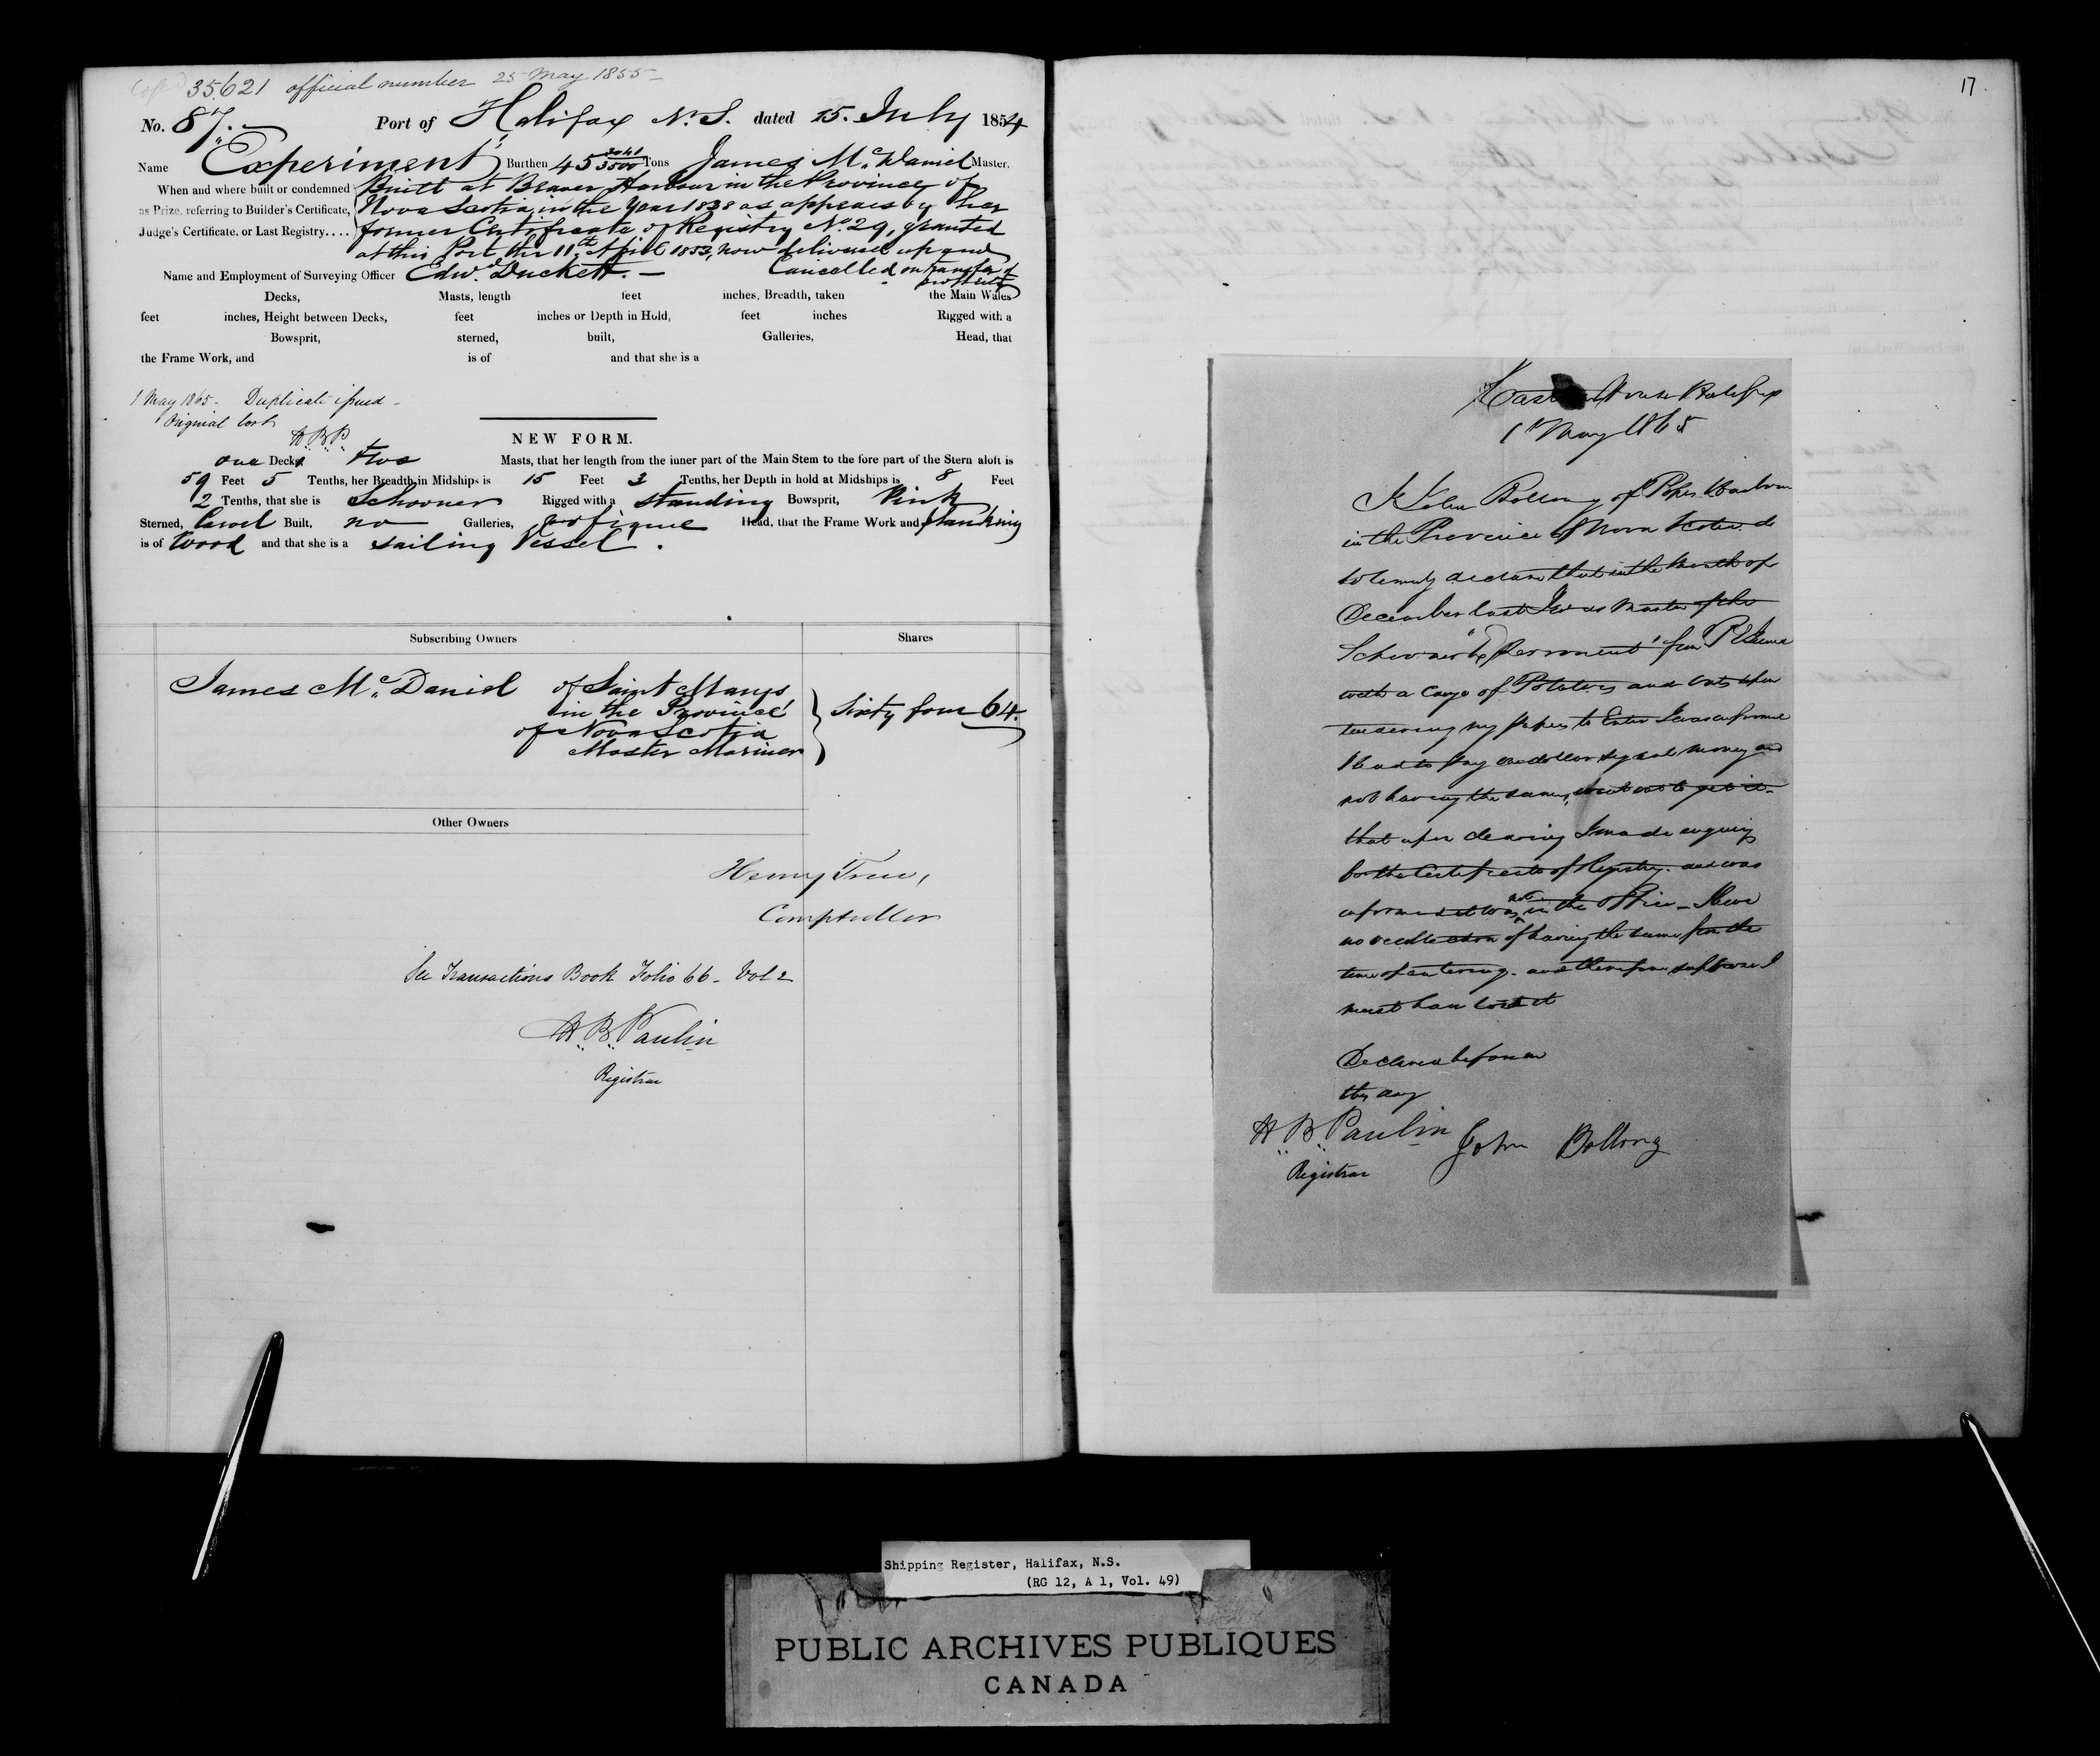 35621 official number 25 May 1855
No. 87. Port of Halifax N.S. dated 15. July 1854
Name "Experiment" Burthen 45 3041/3500 Tons James Mc Daniel Master.
When and where built or condemned as Prize, referring to Builder's Certificate, Judge's Certificate, or Last Registry....
Built at Beaver Harbour in the Province of
Nova Scotia, in the Year 1838 as appears by her
former Certificate of Registry No. 29, granted
at this Port the 11th April 1853, now delivered up and
Cancelled on transfer of
property
Name and Employment of Surveying Officer Edwd. Duckett. —
Decks, Masts, length feet inches, Breadth, taken the Main Wales
feet inches, Height between Decks, feet inches or Depth in Hold, feet inches Rigged with a
Bowsprit, sterned, built, Galleries, Head, that
the Frame Work, and is of and that she is a
1 May 1865. Duplicate issued —
Original lost
H.B.P.
NEW FORM.
one Decks two Masts, that her length from the inner part of the Main Stem to the fore part of the Stern aloft is
59 Feet 5 Tenths, her Breadth in Midships is 15 Feet 3 Tenths, her Depth in hold at Midships is 8 Feet
2 Tenths, that she is Schooner Rigged with a standing Bowsprit, Pink
Sterned, Carvel Built, no Galleries, no figure Head, that the Frame Work and planking
is of Wood and that she is a sailing Vessel.
Subscribing Owners Shares
James Mc Daniel of Saint Marys
in the Province
of Nova Scotia
Master Mariner
Sixty four 64.
Other Owners
Henry Trew,
Comptroller
See Transactions Book Folio 66 - Vol 2
H.B. Paulin
Registrar
17.
Custom House Halifax
1st May 1865
I John Bollong of Popes Harbour
in the Province of Nova Scotia do
solemnly declare that in the Month of
December last I was Master of the
Schooner "Experiment" from P E Island
with a Cargo of Potatoes and Oats upon
tendering my papers to Enter I was informed
I had to pay one dollar signal money and
not having the same, went out to get it.
that upon clearing I made enquiry
for the Certificate of Registry. and was
informed it was not in the Office — I have
no recollection of having the same from the
time of entering. and therefore suppose I
must have lost it
Declared before me
this day
H.B. Paulin John Bollong
Registrar
Shipping Register, Halifax, N.S.
(RG 12, A 1, Vol. 49)
PUBLIC ARCHIVES PUBLIQUES
CANADA